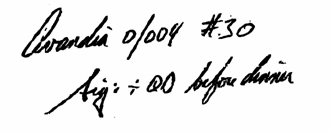 Avandia 0/004 #30
Sig: ÷ QD before dinner